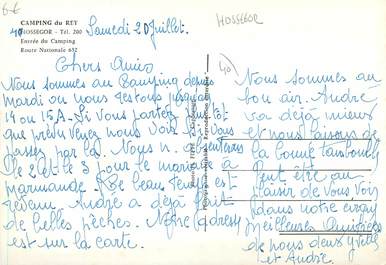 6-6
CAMPING du REY
40 HOSSEGOR - Tél. 200
Entrée du Camping
Route Nationale 652
HOSSEGOR
40
Samedi 20 Juillet.
Chers Amis
Nous sommes au Camping depuis
mardi ou nous restons jusqu'au
14 ou 15 A. Si vous partez
que prévu venez nous voir
passer par la. Nous n. absenterons
le 2 et le 3 pour le mariage à
Marmande. Le beau temps est
revenu. André a déjà fait
de belles pêches. Notre adresse
est sur la carte.
Nous sommes au
bon air. André
va déjà mieux
et nous faisons de
la bonne tambouille
Peut être au
plaisir de vous voir
dans notre
Meilleures Amitiés
de nous deux Yvette
et André.